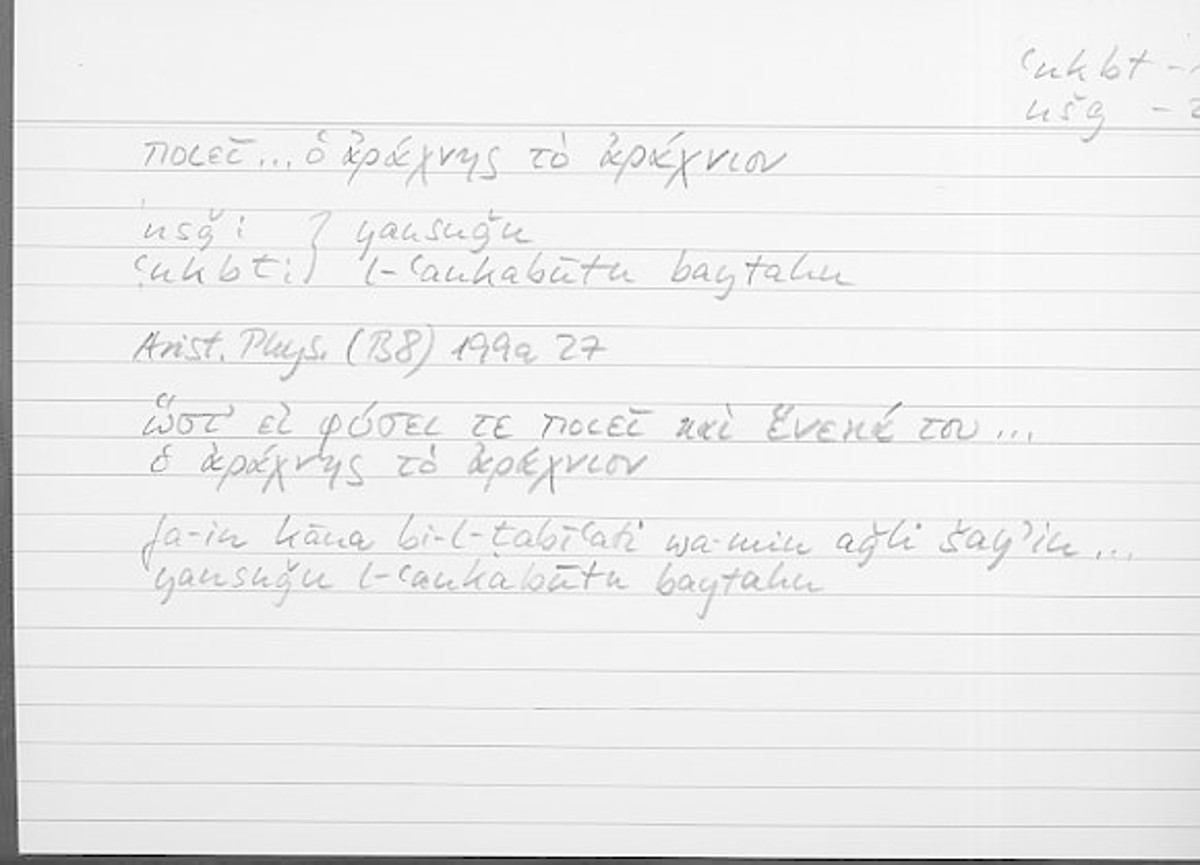 ʿnkbt –
nšg –
ποιεῖ ... ὁ ἀράχνης τὸ ἀράχνιον
nsǧ : } yansuǧu
ʿnkbt : } l-ʿankabūtu baytahu
Arist. Phys. (B8) 199a 27
ὥστ' εἰ φύσει τε ποιεῖ καὶ ἕνεκά του ...
ὁ ἀράχνης τὸ ἀράχνιον
fa-in kāna bi-l-ṭabīʿati wa-min aǧli šayʾin ...
yansuǧu l-ʿankabūtu baytahu